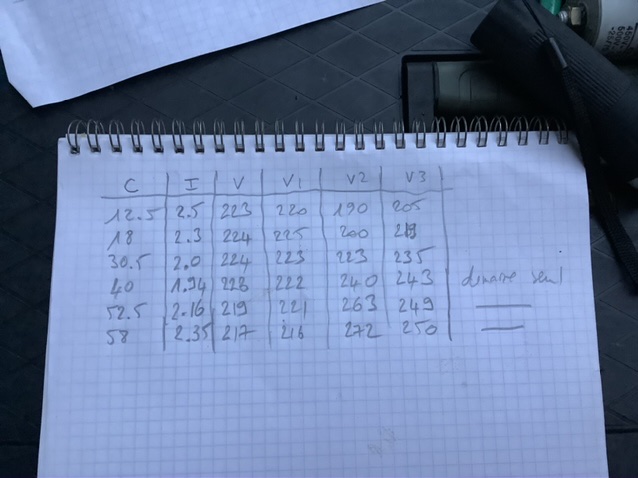 C I V V1 V2 V3
12.5 2.5 223 220 190 205
18 2.3 224 225 200 213
30.5 2.0 224 223 223 235
40 1.94 226 222 240 243 démarre seul
52.5 2.16 219 221 263 249
58 2.35 217 216 272 250